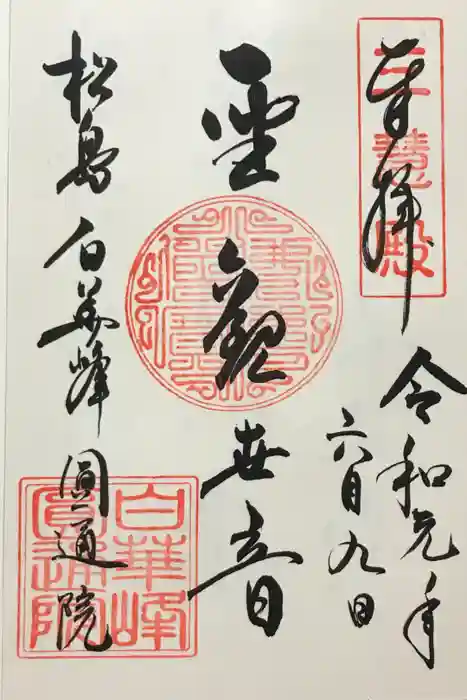 奉拝
三慧殿
令和元年
六月九日
聖観世音
松島 白華峰 圓通院
白華峰
圓通院